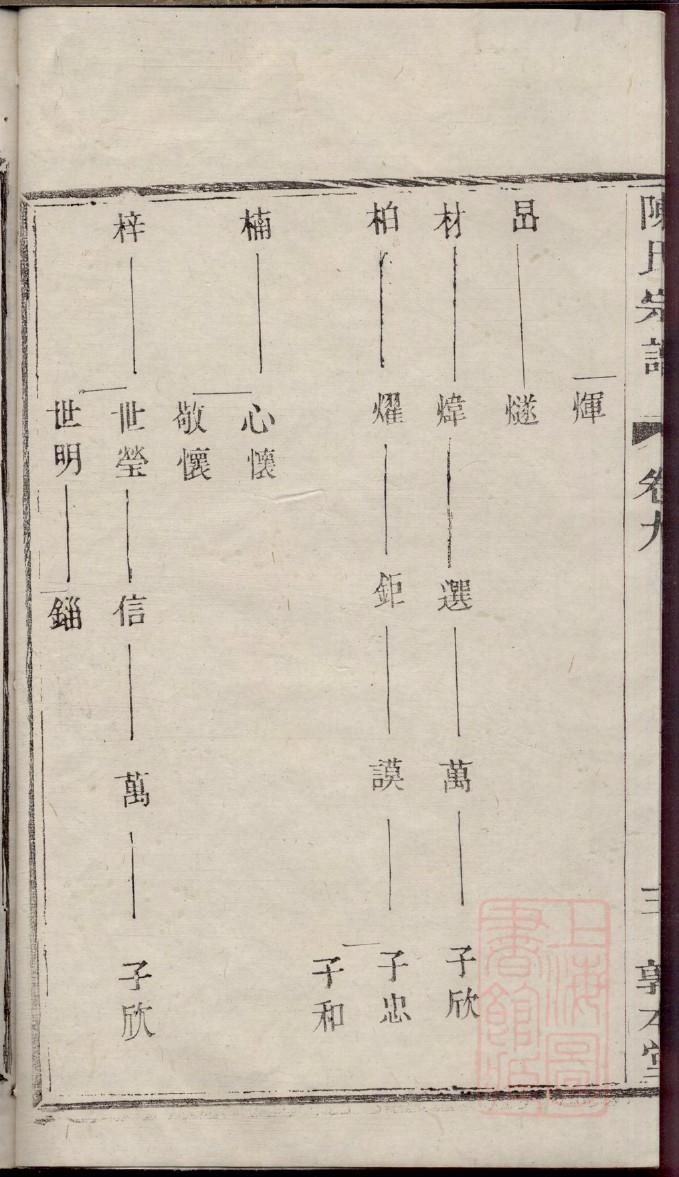 陳氏宗譜 卷九 三 敦本堂
煇
昌 燧
材 煒 選 萬 子欣
柏 燿 鉅 謨 子忠
子和
楠 心懷
敬懷
梓 世瑩 信 萬 子欣
世明 錙
上海圖書館藏